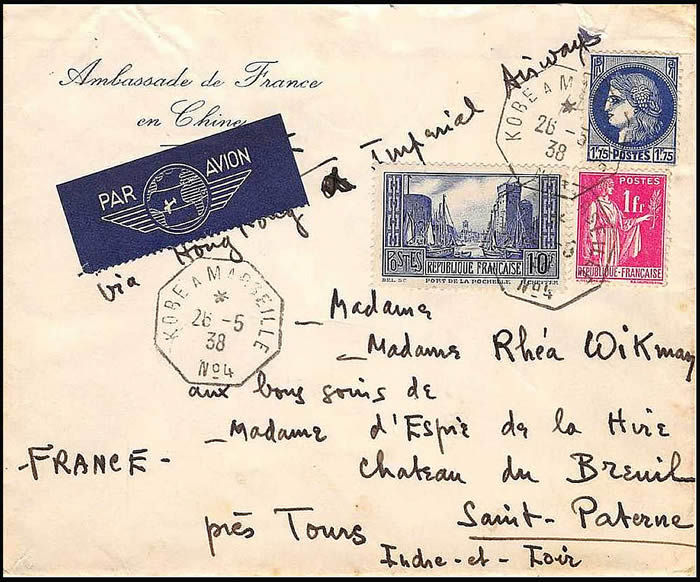 Ambassade de France
en Chine
PAR AVION
via Hong Kong & Imperial Airways
KOBE A MARSEILLE
26 -5
38
Nº4
1F75 POSTES 1F75
POSTES
1fr
REPUBLIQUE-FRANÇAISE
POSTES RÉPUBLIQUE FRANÇAISE 10F
PORT DE LA ROCHELLE
KOBE A MARSEILLE
*
26 -5
38
Nº4
Madame
Madame Rhéa Wikman
aux bons soins de
Madame d'Espie de la Hire
chateau du Breuil
Saint-Paterne
près Tours
Indre-et-Loir
-FRANCE-